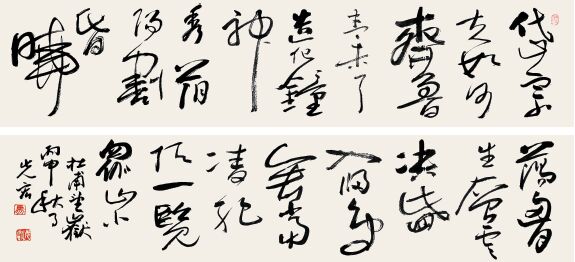 岱宗
夫如何
齊魯
青未了
造化鐘
神
秀陰
陽割
昏
曉
蕩胸
生層雲
決眥
入歸鳥
會當
凌絕
頂一覽
眾山小
杜甫望嶽
丙申秋月